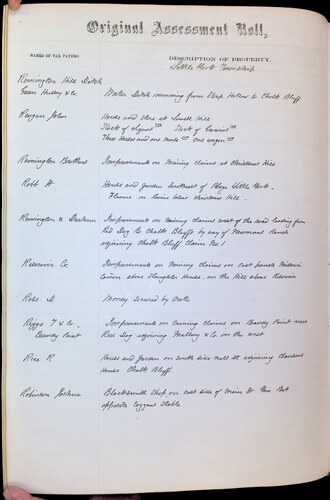 Original Assessment Roll,
NAMES OF TAX PAYERS.
DESCRIPTION OF PROPERTY.
Little York Township
Remington Hill Ditch
Green Hussy & Co Water Ditch running from Steep Hollow to Chalk Bluff
Reagan John House and Store at Lowell Hill
Stock of Liquors Stock of
Three Horses and one mule one wagon
Remington Brothers Improvements on Mining claims at Christmas Hill
Robb H House and Garden Southeast of Plaza Little York.
Flume in Ravine below Christmas Hill.
Remington & Durham Improvements on Mining claims west of the road leading from
Red Dog to Chalk Bluffs by way of Newmans Ranch
adjoining Chalk Bluff Claim No. 1
Reservoir Co Improvements on Mining claims on east bank Missouri
Cañon above Slaughter House, on the Hill above Reservoir
Rose D Money Secured by Note
Riggs T & Co. Improvements on Mining claims on Barney Point near
Point Red Dog adjoining Mallory & Co on the west
Rice R House and Garden on south side road adjoining
House Chalk Bluff
Robinson Joshua Blacksmith Shop on east side of Main St You Bet
opposite Stable